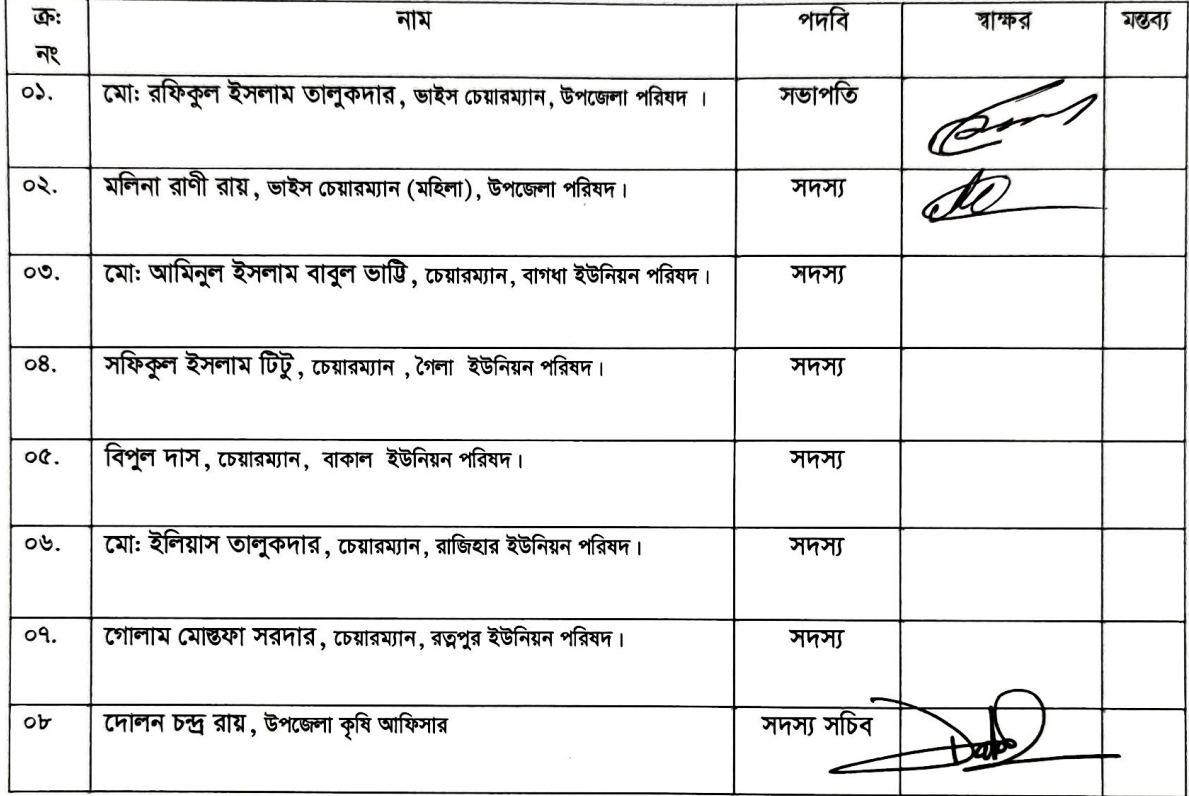 ক্র: নাম পদবি স্বাক্ষর মন্তব্য
নং
০১. মো: রফিকুল ইসলাম তালুকদার, ভাইস চেয়ারম্যান, উপজেলা পরিষদ । সভাপতি
০২. মলিনা রাণী রায়, ভাইস চেয়ারম্যান (মহিলা), উপজেলা পরিষদ। সদস্য
০৩. মো: আমিনুল ইসলাম বাবুল ভাট্টি, চেয়ারম্যান, বাগধা ইউনিয়ন পরিষদ। সদস্য
০৪. সফিকুল ইসলাম টিটু, চেয়ারম্যান , গৈলা ইউনিয়ন পরিষদ। সদস্য
০৫. বিপুল দাস, চেয়ারম্যান, বাকাল ইউনিয়ন পরিষদ। সদস্য
০৬. মো: ইলিয়াস তালুকদার, চেয়ারম্যান, রাজিহার ইউনিয়ন পরিষদ। সদস্য
০৭. গোলাম মোস্তফা সরদার, চেয়ারম্যান, রত্নপুর ইউনিয়ন পরিষদ। সদস্য
০৮ দোলন চন্দ্র রায়, উপজেলা কৃষি আফিসার সদস্য সচিব